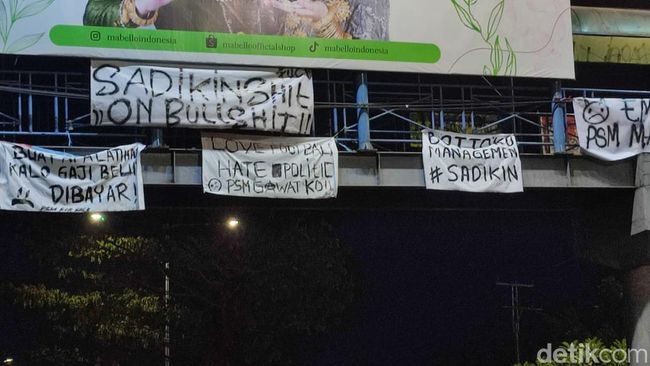 mabelloindonesia
mabelloofficialshop
mabelloindonesia
SADIKINSHIT
"ON BULLSHIT!!
KALO GAJI BELUM
DIBAYAR!
LOVE FOOTBALL
HATE POLITIC
PSM GAWAT KO!!
BOTTOKO
MANAGEMEN
#SADIKIN
PSM MA
detikcom